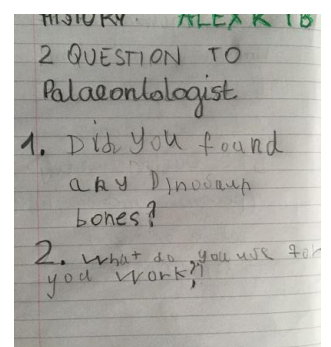 HISTORY. ALEX K 1B
2 QUESTION TO
Palaeontologist
1. Did you found
any Dinosaur
bones?
2. What do you use for
you work?